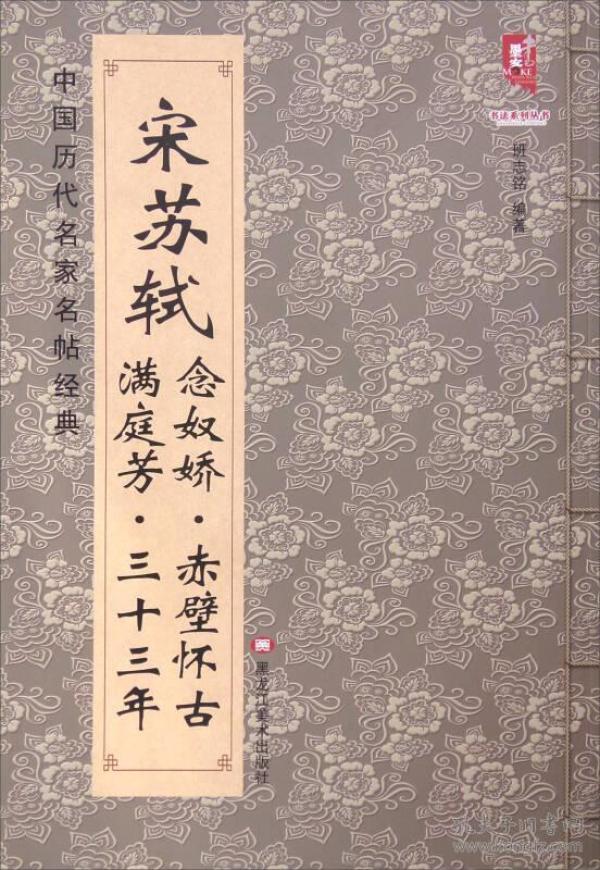 墨客
MOKE
书法系列丛书
班志铭 编著
宋苏轼
念奴娇·赤壁怀古
满庭芳·三十三年
中国历代名家名帖经典
黑龙江美术出版社
孔夫子旧书网